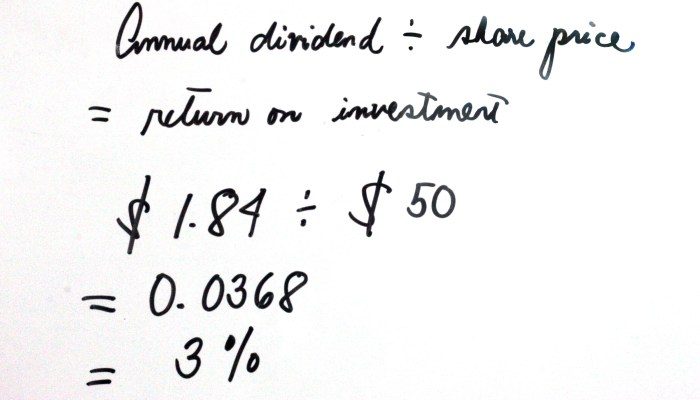 Annual dividend ÷ share price
= return on investment
$ 1.84 ÷ $ 50
= 0.0368
= 3%